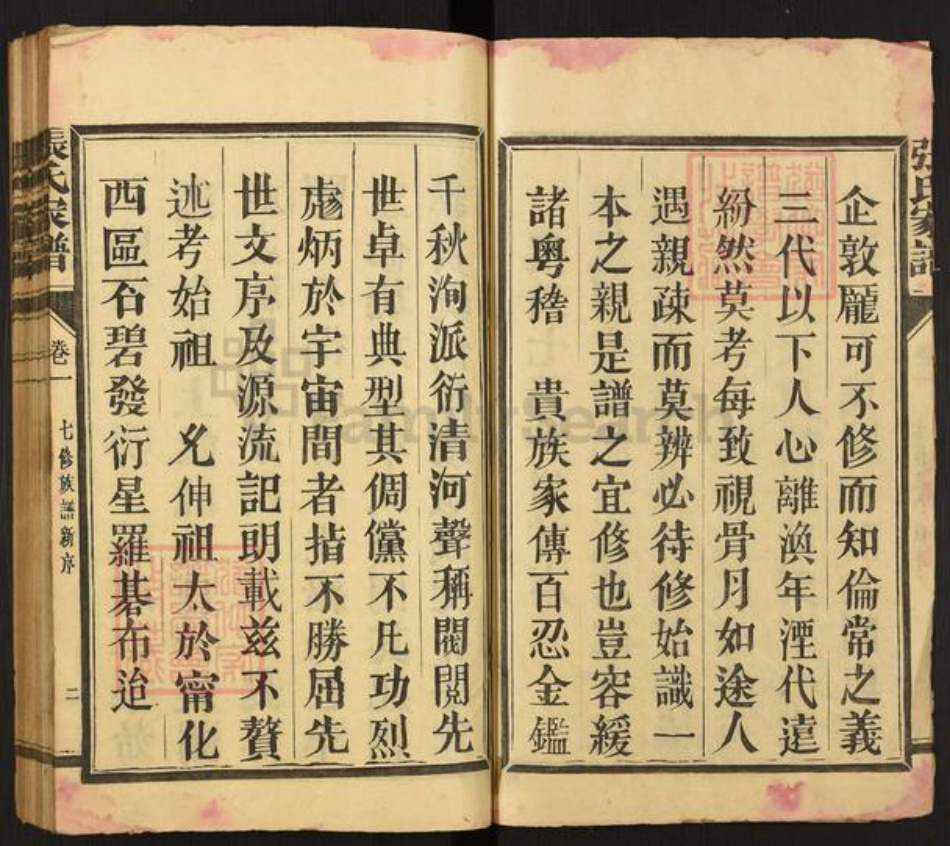 企敦厖可不修而知倫常之義
三代以下人心離渙年湮代遠
紛然莫考每致視骨月如途人
遇親疎而莫辨必待修始識一
本之親是譜之宜修也豈容緩
諸粵稽　貴族家傳百忍金鑑
千秋洵派衍清河聲稱閥閱先
世卓有典型其倜儻不凡功烈
彪炳於宇宙間者指不勝屈先
世文序及源流記明載茲不贅
述考始祖　伸祖太於甯化
西區石碧發衍星羅碁布迨
張氏家譜
卷一
七修族譜新序
二
張氏家譜
FamilySearch